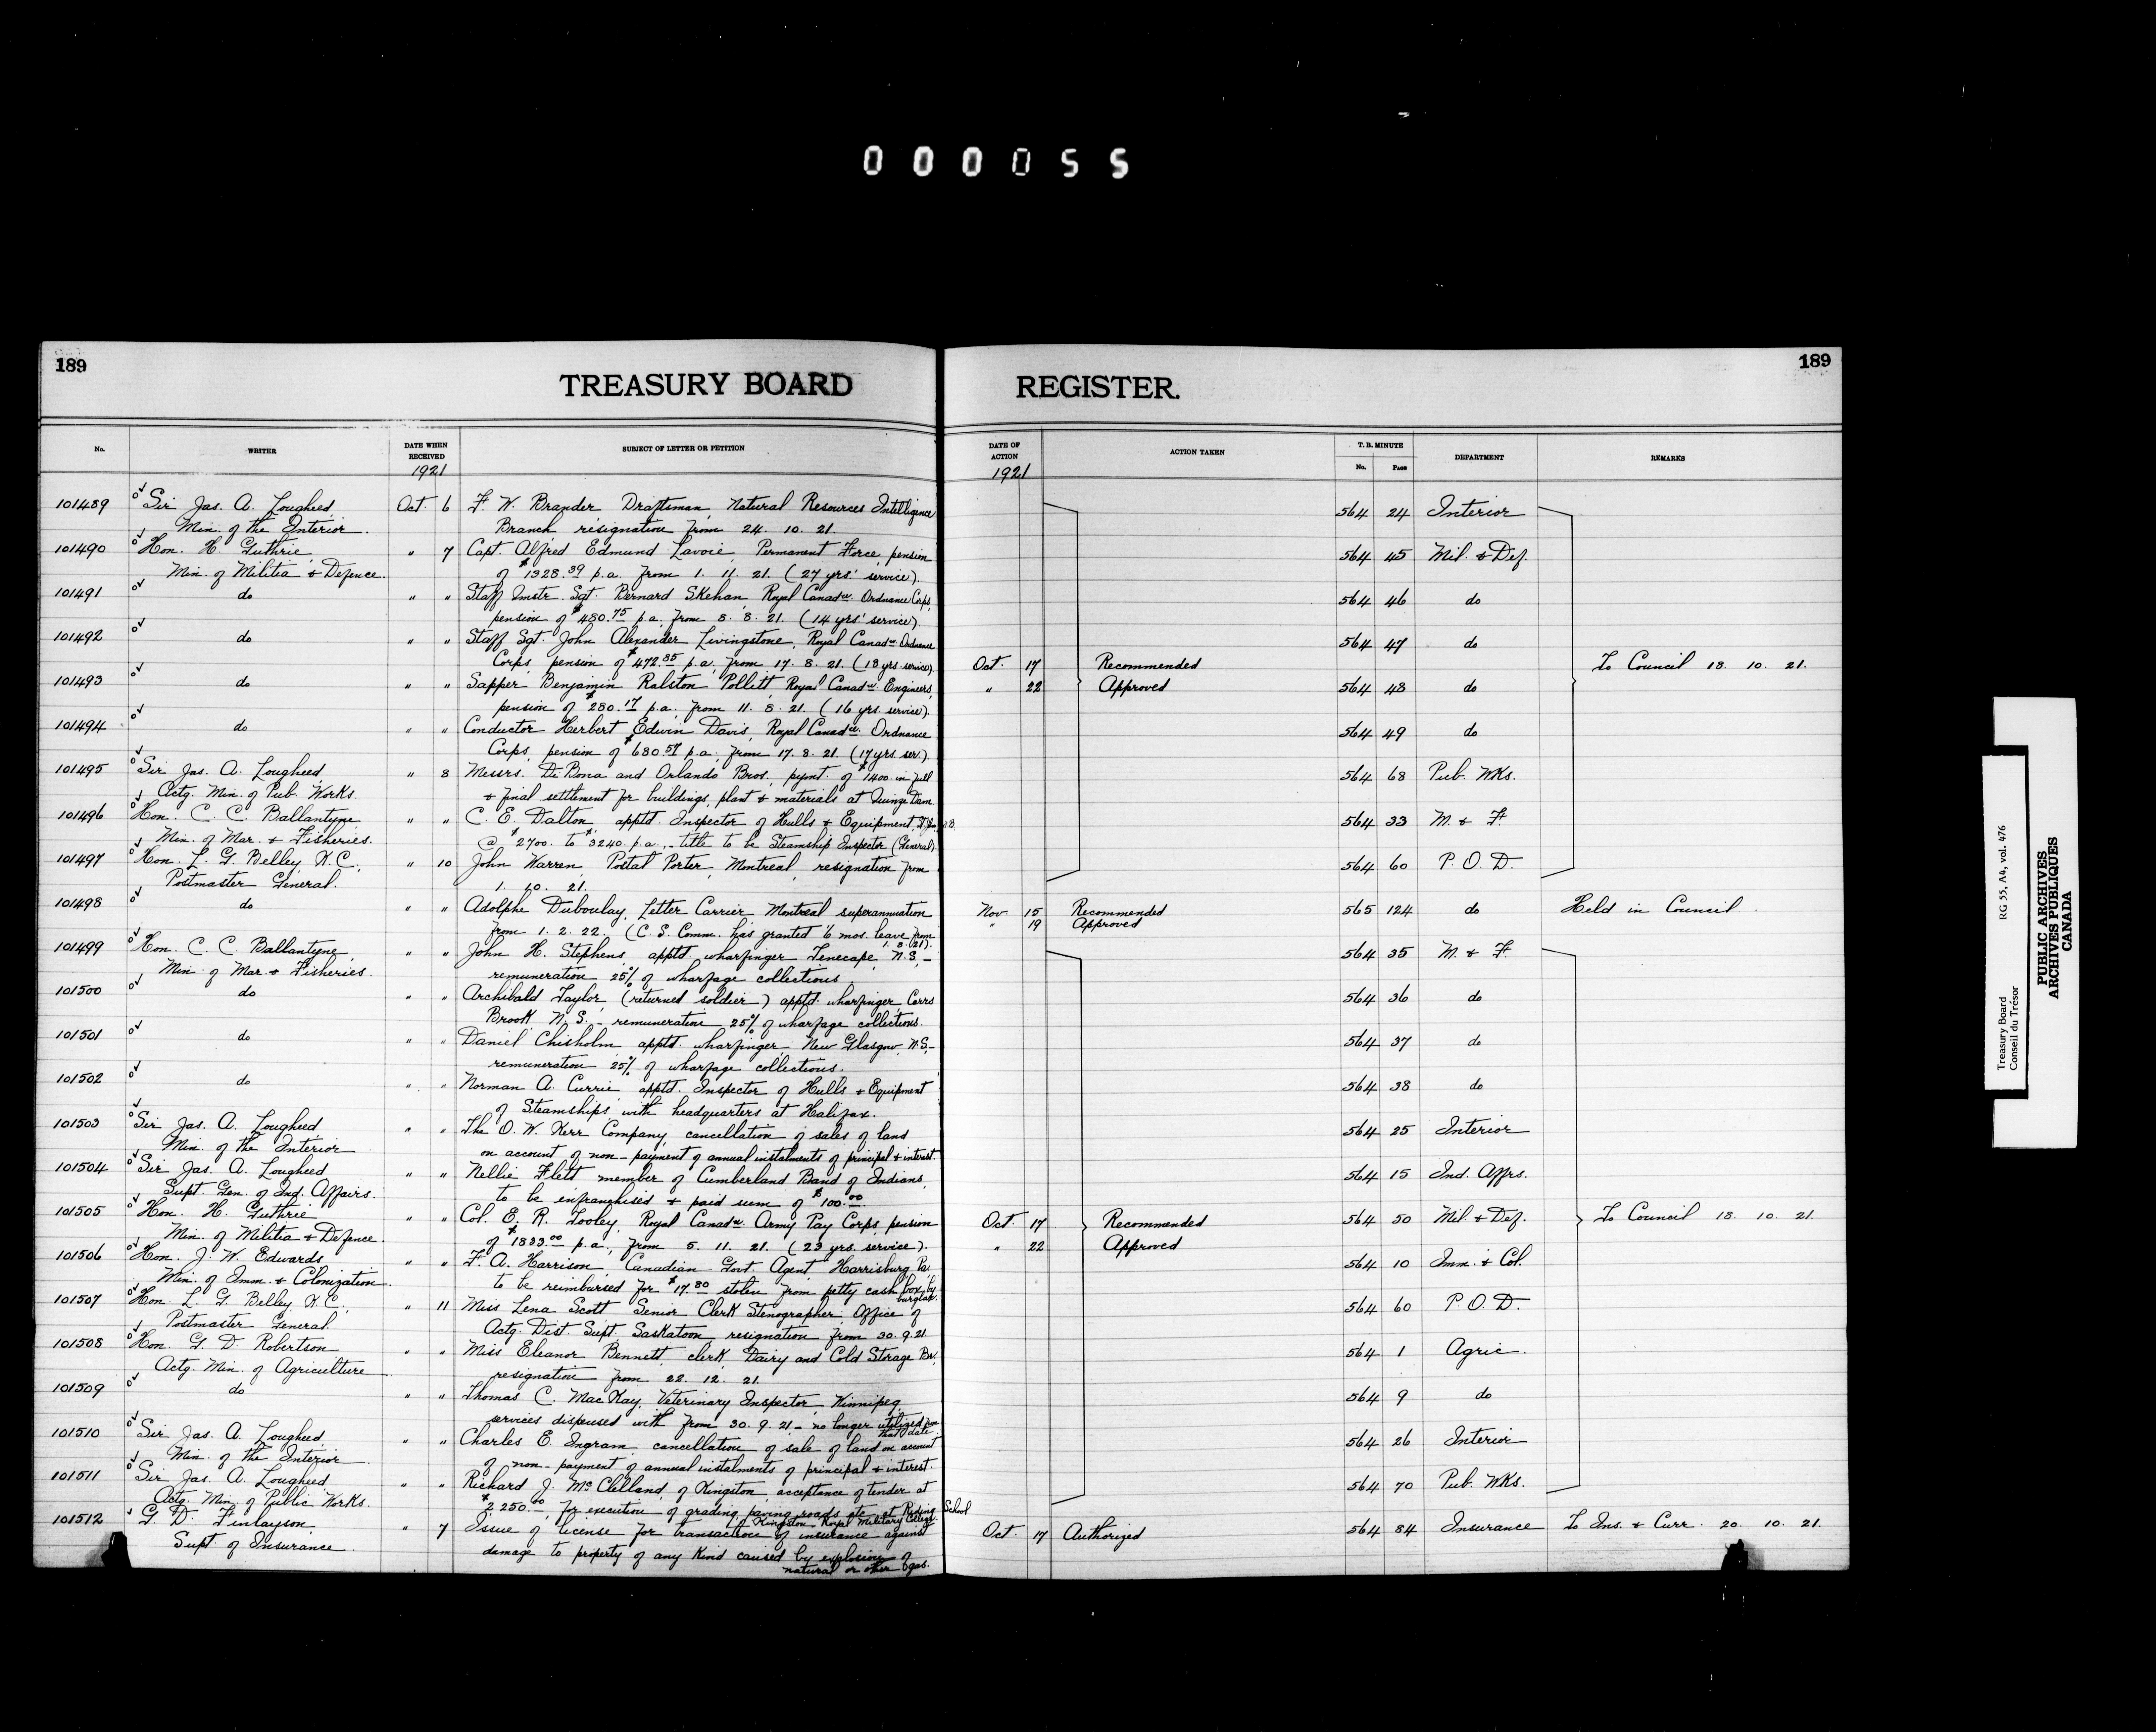 000055
189
TREASURY BOARD REGISTER.
189
No. WRITER DATE WHEN RECEIVED SUBJECT OF LETTER OR PETITION DATE OF ACTION ACTION TAKEN T. B. MINUTE No. Page DEPARTMENT REMARKS
1921 1921
101489 Sir Jas. A. Lougheed, Oct. 6 F. W. Brander Draftsman, Natural Resources Intelligence 564 24 Interior
Min. of the Interior. Branch, resignation from 24. 10. 21.
101490 Hon. H. Guthrie, " 7 Capt. Alfred Edmund Lavoie, Permanent Force, pension 564 45 Mil. & Def.
Min. of Militia & Defence. of $1328.39 p.a. from 1. 11. 21. (27 yrs.' service).
101491 do " " Staff Instr. Sgt. Bernard Skehan, Royal Canadn. Ordnance Corps, 564 46 do
pension of $480.75 p.a. from 8. 8. 21. (14 yrs' service).
101492 do " " Staff Sgt. John Alexander Livingstone, Royal Canadn. Ordnance 564 47 do
Corps, pension of $472.35 p.a. from 17. 8. 21. (18 yrs. service). Oct. 17 Recommended To Council 18. 10. 21.
101493 do " " Sapper Benjamin Ralston Pollitt, Royal Canadn. Engineers, " 22 Approved 564 48 do
pension of $280.17 p.a. from 11. 8. 21. (16 yrs. service).
101494 do " " Conductor Herbert Edwin Davis, Royal Canadn. Ordnance 564 49 do
Corps, pension of $680.57 p.a. from 17. 8. 21. (17 yrs. ser.).
101495 Sir Jas. A. Lougheed, " 8 Messrs. Di Bona and Orlando Bros., pymt. of $1400. in full 564 68 Pub. Wks.
Actg. Min. of Pub. Works. & final settlement for buildings, plant & materials at Quinze Dam.
101496 Hon. C. C. Ballantyne " " C. E. Dalton, apptd. Inspector of Hulls & Equipment, St. John, N.B. 564 33 M. & F.
Min. of Mar. & Fisheries. @ $2700. to $3240. p.a. - title to be Steamship Inspector (General).
101497 Hon. L. G. Belley, K.C., " 10 John Warren, Postal Porter, Montreal, resignation from 564 60 P. O. D.
Postmaster General. 1. 10. 21.
101498 do " " Adolphe Duboulay, Letter Carrier, Montreal superannuation Nov. 15 Recommended 565 124 do Held in Council.
from 1. 2. 22. (C. S. Comm. has granted 6 mos. leave from 1. 8. 21). " 19 Approved
101499 Hon. C. C. Ballantyne, " " John H. Stephens, apptd. wharfinger Tenecape, N.S., - 564 35 M. & F.
Min. of Mar. & Fisheries. remuneration 25% of wharfage collections
101500 do " " Archibald Taylor, (returned soldier) apptd. wharfinger, Carrs 564 36 do
Brook N. S. - remuneration 25% of wharfage collections.
101501 do " " Daniel Chisholm apptd. wharfinger, New Glasgow, N.S., - 564 37 do
remuneration 25% of wharfage collections.
101502 do " " Norman A. Currie apptd. Inspector of Hulls & Equipment 564 38 do
of Steamships, with headquarters at Halifax.
101503 Sir Jas. A. Lougheed " " The O. W. Kerr Company, cancellation of sales of land 564 25 Interior
Min. of the Interior on account of non-payment of annual instalments of principal & interest.
101504 Sir Jas. A. Lougheed " " Nellie Flett member of Cumberland Band of Indians, 564 15 Ind. Affrs.
Supt. Gen. of Ind. Affairs. to be enfranchised & paid sum of $100.00.
101505 Hon. H. Guthrie " " Col. E. R. Tooley, Royal Canadn. Army Pay Corps, pension Oct. 17 Recommended 564 50 Mil. & Def. To Council 18. 10. 21.
Min. of Militia & Defence. of $1833.00 p.a., from 5. 11. 21. (23 yrs. service). " 22 Approved
101506 Hon. J. W. Edwards " " F. A. Harrison, Canadian Govt. Agent, Harrisburg Pa. 564 10 Imm. & Col.
Min. of Imm. & Colonization. to be reimbursed for $17.80 stolen from petty cash box, by burglar.
101507 Hon. L. G. Belley, K.C., " 11 Miss Lena Scott Senior Clerk Stenographer, Office of 564 60 P. O. D.
Postmaster General Actg. Dist. Supt. Saskatoon, resignation from 30. 9. 21.
101508 Hon. G. D. Robertson " " Miss Eleanor Bennett, clerk, Dairy and Cold Storage Br., 564 1 Agric.
Actg. Min. of Agriculture resignation from 22. 12. 21.
101509 do " " Thomas C. MacKay, Veterinary Inspector, Winnipeg, 564 9 do
services dispensed with from 30. 9. 21 - no longer utilized from that date.
101510 Sir Jas. A. Lougheed " " Charles E. Ingram, cancellation of sale of land on account 564 26 Interior
Min. of the Interior of non-payment of annual instalments of principal & interest.
101511 Sir Jas. A. Lougheed " " Richard J. McClelland, of Kingston, acceptance of tender at 564 70 Pub. Wks.
Actg. Min. of Public Works. $2,250.00, for execution of grading, paving roads, etc. at Riding School
of Kingston Royal Military College.
101512 G. D. Finlayson, " 7 Issue of license for transaction of insurance against Oct. 17 Authorized 564 84 Insurance To Ins. & Curr. 20. 10. 21.
Supt. of Insurance. damage to property of any kind caused by explosion of
natural or other gas.
Treasury Board RG 55, A4, vol. 476
Conseil du Trésor
PUBLIC ARCHIVES
ARCHIVES PUBLIQUES
CANADA